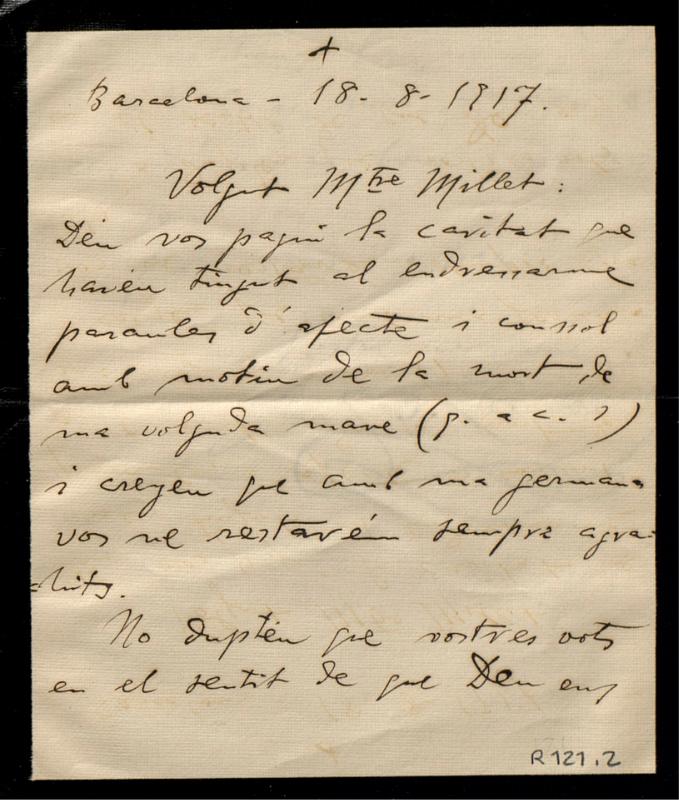 +
Barcelona - 18 - 8 - 1917.
Volgut Mtre Millet:
Déu vos pagui la caritat que
haveu tingut al endressarme
paraules d'afecte i consol
amb motiu de la mort de
ma volguda mare (q. a c. s)
i creyeu que amb ma germana
vos ne restarém sempre agra-
-hits.
No dupteu que vostres vots
en el sentit de que Deu ens
R 121.2